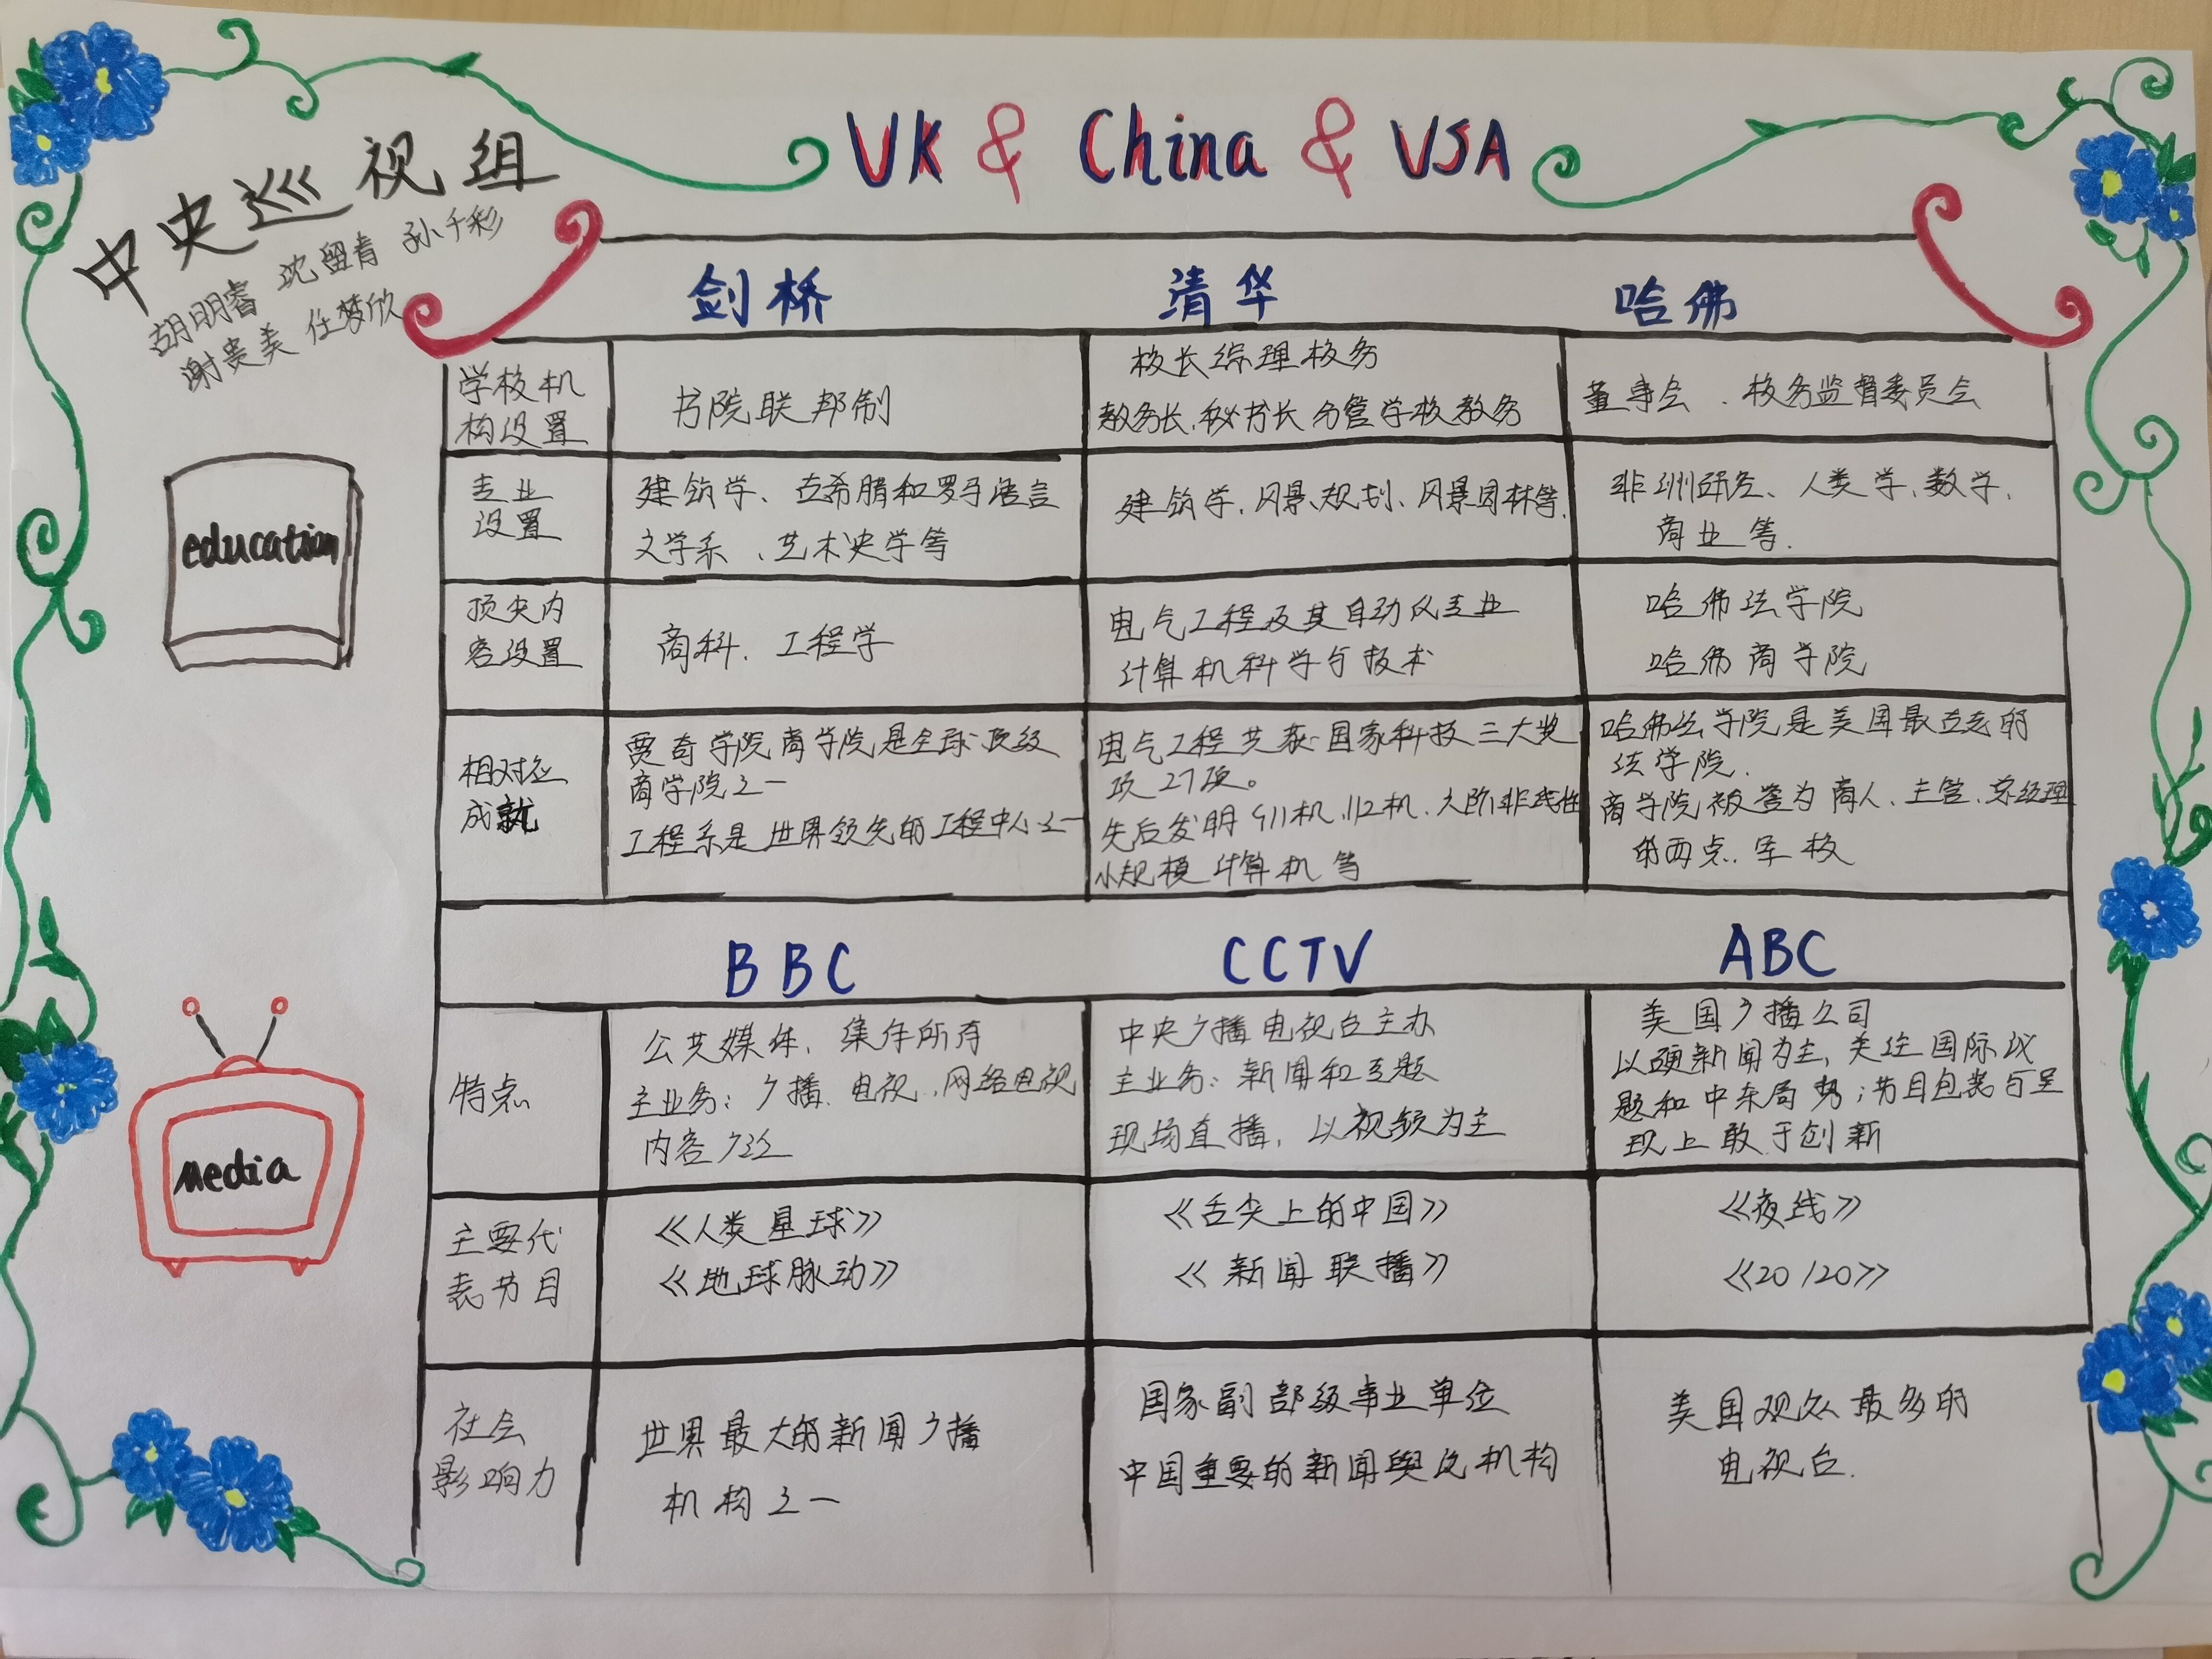 UK & China & USA
中央巡视组
胡明睿 沈留青 孙千彩
谢贵美 任梦欣
education
剑桥 清华 哈佛
学校机
构设置
书院联邦制
校长综理校务
教务长、秘书长分管学校教务
董事会、校务监督委员会
专业
设置
建筑学、古希腊和罗马语言
文学系、艺术史学等
建筑学、风景规划、风景园林等
非洲研究、人类学、数学、
商业等.
顶尖内
容设置
商科、工程学
电气工程及其自动化专业
计算机科学与技术
哈佛法学院
哈佛商学院
相对应
成就
贾奇学院商学院是全球顶级
商学院之一
工程系是世界领先的工程中心之一
电气工程共获国家科技三大奖
项27项。
先后发明911机、112机、六阶非线性
小规模计算机等
哈佛法学院是美国最古老的
法学院.
商学院被誉为商人、主管、总经理
的西点军校
BBC CCTV ABC
media
特点
公共媒体、集体所有
主业务：广播、电视、网络电视
内容广泛
中央广播电视台主办
主业务：新闻和专题
现场直播，以视频为主
美国广播公司
以硬新闻为主，关注国际议
题和中东局势；节目包装与呈
现上敢于创新
主要代
表节目
《人类星球》
《地球脉动》
《舌尖上的中国》
《新闻联播》
《夜线》
《20/20》
社会
影响力
世界最大的新闻广播
机构之一
国家副部级事业单位
中国重要的新闻舆论机构
美国观众最多的
电视台.